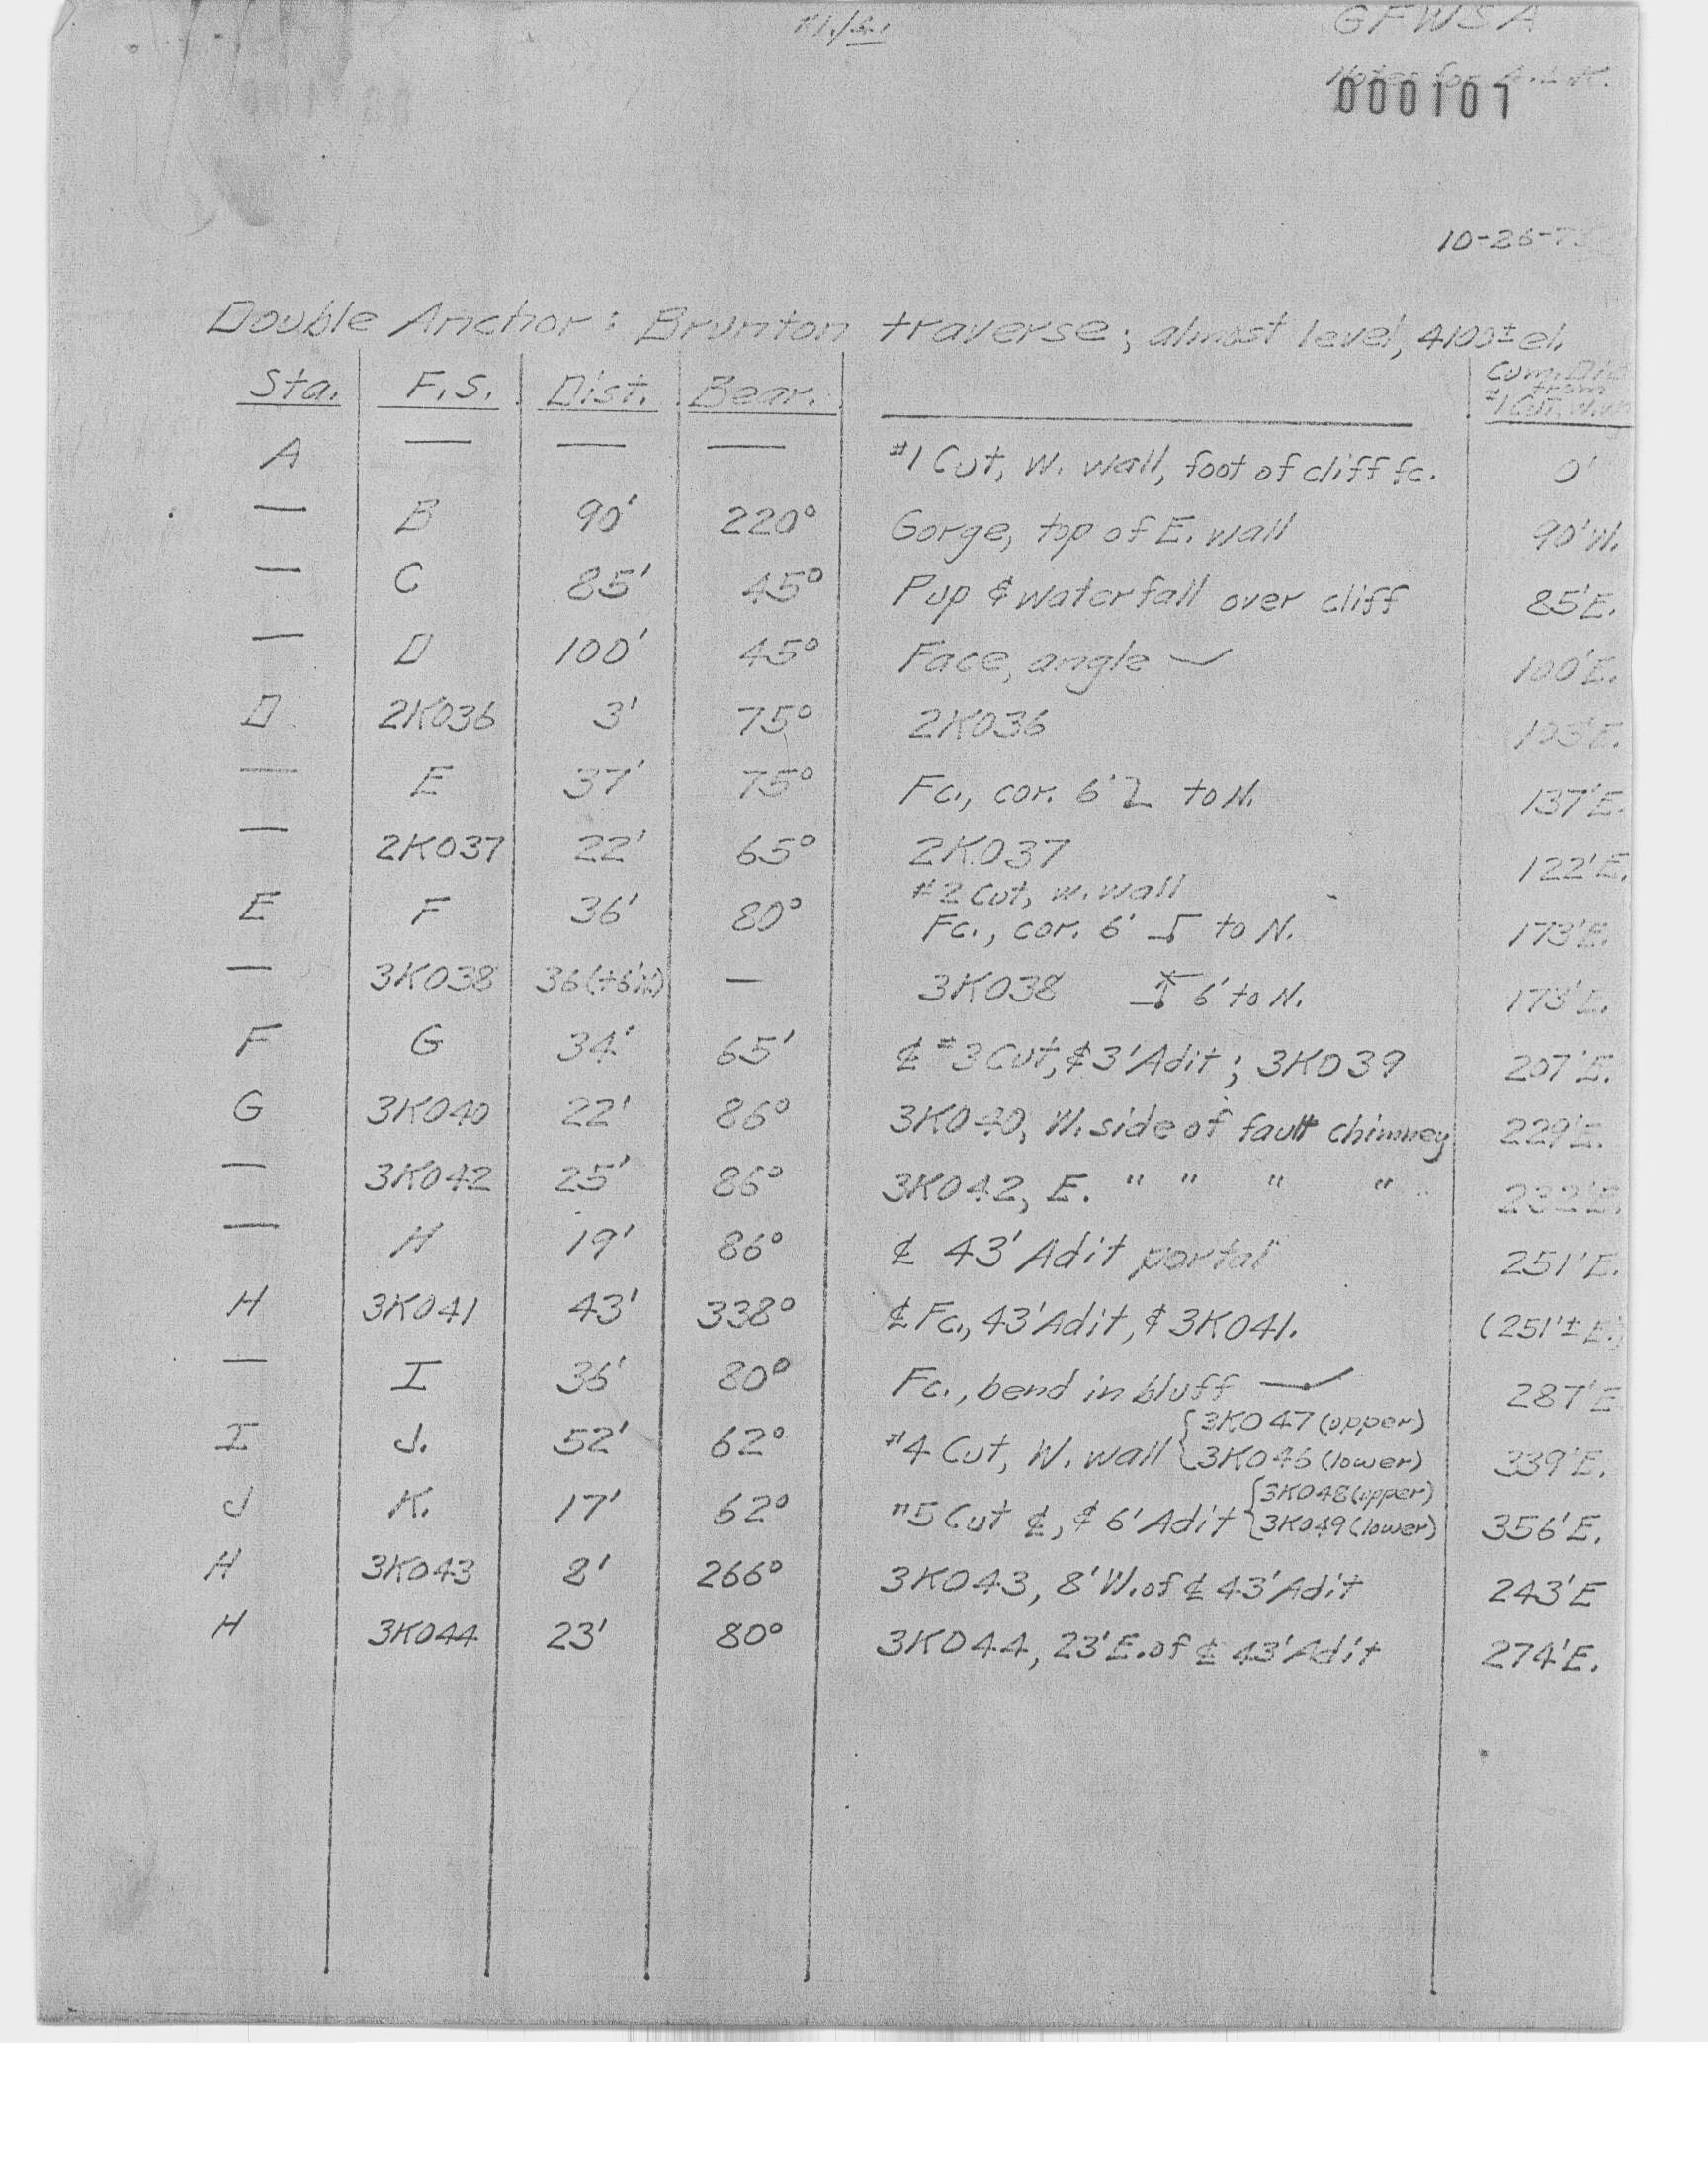 GFWSA
Notes for
000107
10-26-7
Double Anchor: Brunton traverse; almost level, 4100± el.
Sta. F.S. Dist. Bear. Cum. Dis
from
#1 Cut, W.
A — — — #1 Cut, W. wall, foot of cliff fc. 0'
— B 90' 220° Gorge, top of E. wall 90'W.
— C 85' 45° Pup & waterfall over cliff 85'E.
— D 100' 45° Face, angle 100'E.
D 2K036 3' 75° 2K036 103'E.
— E 37' 75° Fc., cor. 6' to N. 137'E.
— 2K037 22' 65° 2K037 122'E.
#2 Cut, w. wall
E F 36' 80° Fc., cor. 6' to N. 173'E.
— 3K038 36 — 3K038 6' to N. 173'E.
F G 34' 65' ℄ #3 Cut, & 3' Adit; 3K039 207'E.
G 3K040 22' 86° 3K040, W. side of fault chimney 229'E.
— 3K042 25' 86° 3K042, E. " " " " 232'E.
— H 19' 86° ℄ 43' Adit portal 251'E.
H 3K041 43' 338° ℄ Fc., 43' Adit, & 3K041. (251'± E.)
— I 36' 80° Fc., bend in bluff 287'E
I J. 52' 62° #4 Cut, W. wall {3K047 (upper) 339'E.
3K046 (lower)
J K. 17' 62° "5 Cut ℄, & 6' Adit {3K048 (upper) 356'E.
3K049 (lower)
H 3K043 8' 266° 3K043, 8' W. of ℄ 43' Adit 243'E
H 3K044 23' 80° 3K044, 23' E. of ℄ 43' Adit 274'E.